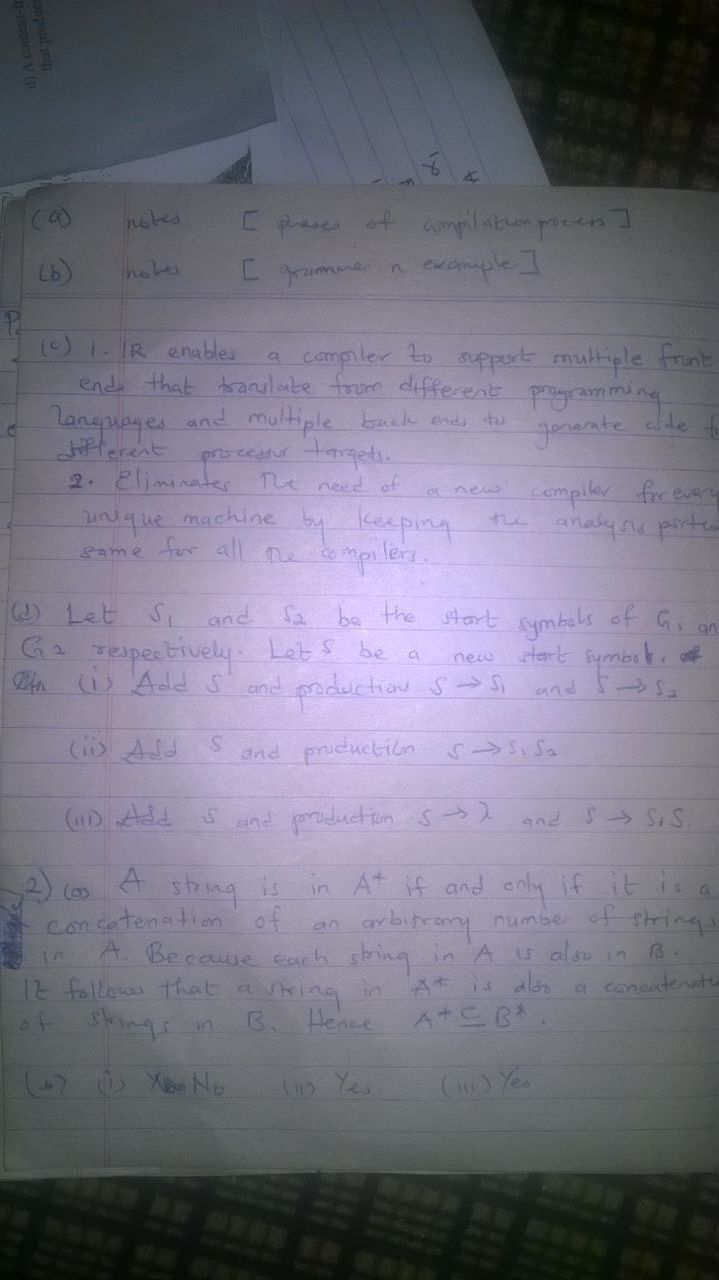 d) A context-f
that produc
(a) notes [ phases of compilation process ]
(b) notes [ gramma n example ]
(c) i. IR enables a compiler to support multiple front
ends that translate from different programming
languages and multiple back ends to generate code
different processor targets.
2. Eliminates the need of a new compiler for every
unique machine by keeping the analysis portio
same for all the compilers.
(d) Let S1 and S2 be the start symbols of G1 an
G2 respectively. Let S be a new start symbol.
(i) Add S and productions S → S1 and S → S2
(ii) Add S and production S → S1 S2
(iii) Add S and production S → λ and S → S1 S.
2) (a) A string is in A* if and only if it is a
concatenation of an arbitrary number of strings
in A. Because each string in A is also in B.
It follows that a string in A* is also a concatenat
of strings in B. Hence A* ⊆ B*.
(b) (i) No (ii) Yes (iii) Yes